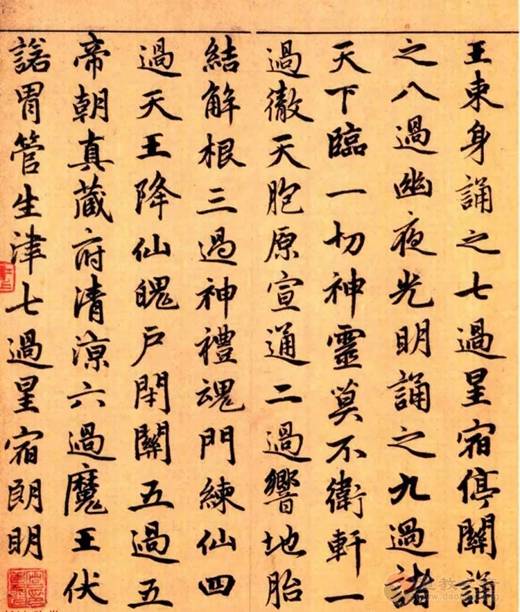 王東身誦之七過星宿停關誦
之八過幽夜光明誦之九過諸
天下臨一切神靈莫不衛軒一
過徹天胞原宣通二過響地胎
結解根三過神禮魂門練仙四
過天王降仙魄戶閇關五過五
帝朝真藏府清涼六過魔王伏
諾胃管生津七過星宿朗明